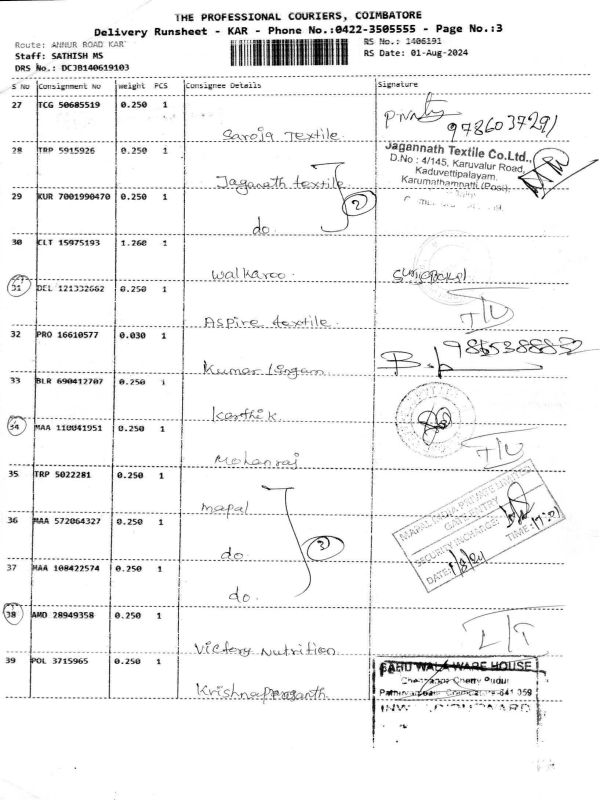 THE PROFESSIONAL COURIERS, COIMBATORE
Delivery Runsheet - KAR - Phone No.:0422-3505555 - Page No.:3
Route: ANNUR ROAD KAR
RS No.: 1406191
Staff: SATHISH MS
RS Date: 01-Aug-2024
DRS No.: DCJB140619103
S No Consignment No Weight PCS Consignee Details Signature
27 TCG 50685519 0.250 1
Saroja Textile.
9786037291
28 TRP 5915926 0.250 1
Jaganath textile
2
Jagannath Textile Co.Ltd.,
D.No : 4/145, Karuvalur Road,
Kaduvettipalayam,
Karumathampatti (Post),
29 KUR 7001990470 0.250 1
do.
30 CLT 15975193 1.260 1
Walkaroo.
31 DEL 121332662 0.250 1
Aspire textile.
32 PRO 16610577 0.030 1
Kumar lingam
33 BLR 690412707 0.250 1
Karthik
34 MAA 110841951 0.250 1
Mohanraj
35 TRP 5022281 0.250 1
Mapal
3
MAPAL INDIA PRIVATE LIMITED
GATE ENTRY
SECURITY INCHARGE:
DATE: 1/8/24 TIME:
36 MAA 572064327 0.250 1
do
37 MAA 108422574 0.250 1
do.
38 AMD 28949358 0.250 1
Victory Nutrition
39 POL 3715965 0.250 1
Krishnaprasanth
SAHU WALA WARE HOUSE
Coimbatore-641 059